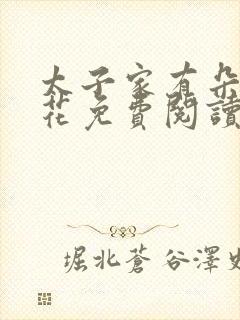 太子家有朵
花免費閱讀
堀北蒼谷澤